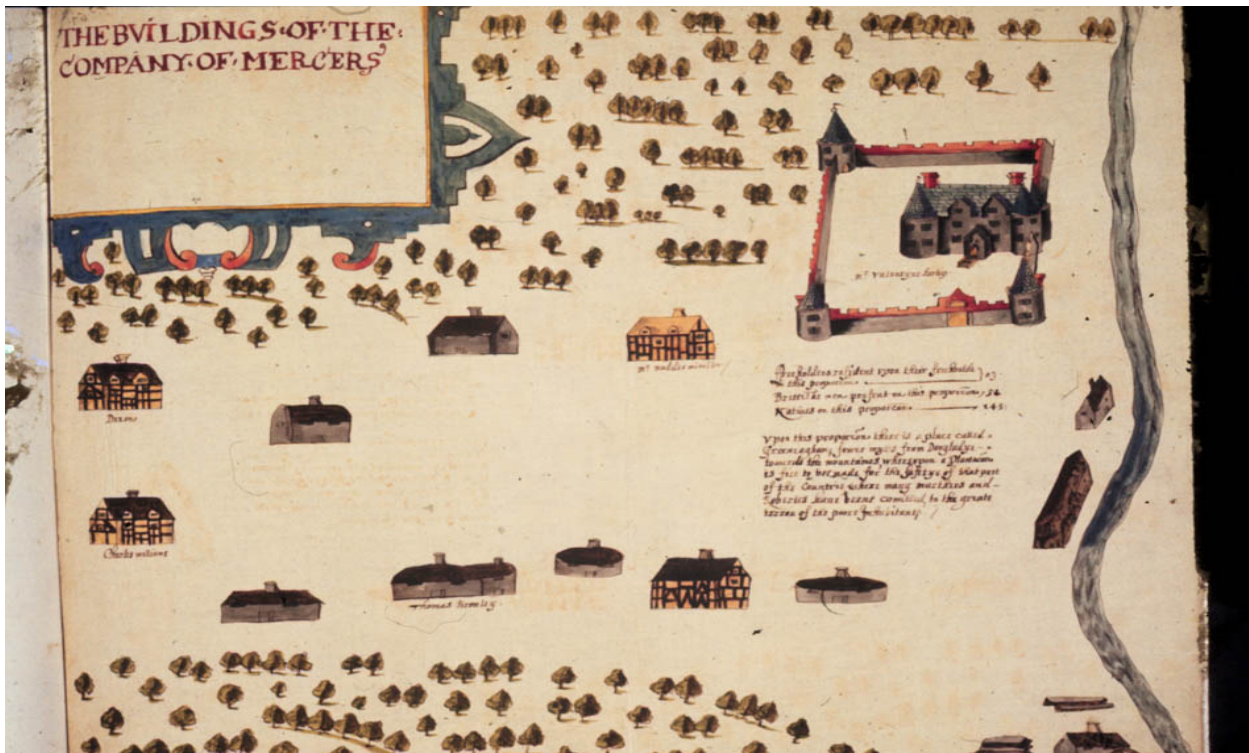 THE BVILDINGS·OF·THE·
COMPANY·OF·MERCERS
Mr Valentyne Hartop
Dixon
Mr Madder
Charles Williams
Thomas Bromley
Freeholders resident vpon their freehould
in this proporcion 03
Brittish men present on this proporcion 52
Natiues on this proporcion 145
Vpon this proporcion there is a place called
fower myles from
towards the mountaines wherevpon a Plantacion
is fitt to bee made for the saftye of that part
of the Countrie where many murthers and
Robberies haue beene comitted, to the greate
terror of the poore Inhabitants.